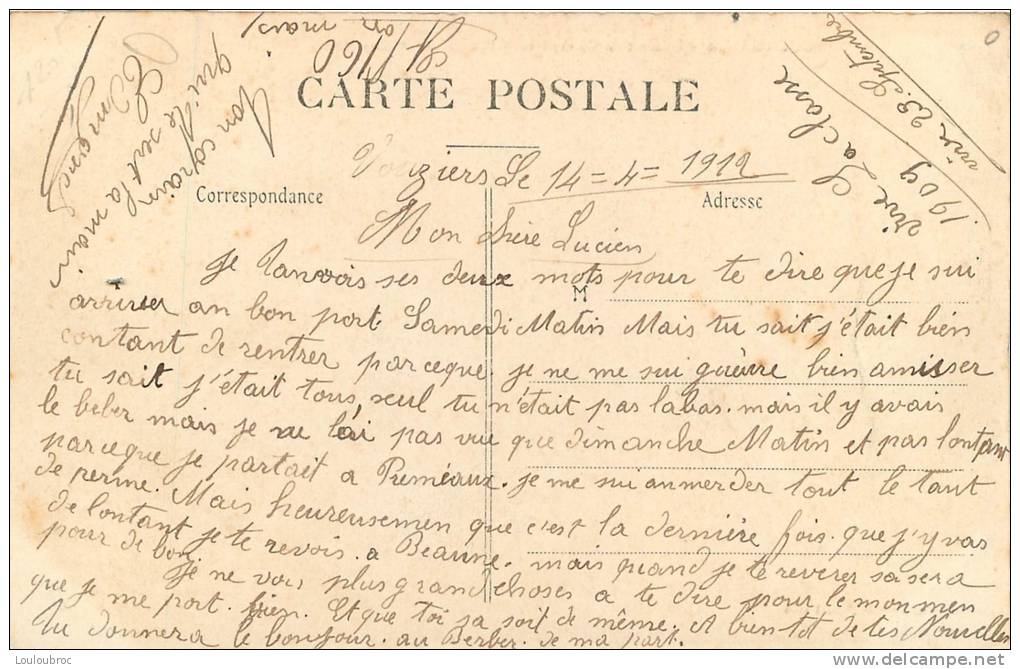 CARTE POSTALE
Correspondance
Adresse
Vouziers Le 14=4=1912
Mon frère Lucien
Je t'anvois ses deux mots pour te dire que je sui
arriver an bon port Samedi Matin Mais tu sait j'était bien
contant de rentrer parceque. je ne me sui guèvre bien amuser
tu sait j'était tous seul tu n'était pas labas. mais il y avais
le beber mais je ne l'ai pas vue que dimanche Matin et pas lontant
parceque je partait a Preméaux. je me sui anmerder tout le tant
de perme. Mais heureusemen que c'est la dernière fois que j'y vas
de lontant je te revois a Beaune. mais quand je te reverer sa sera
pour de bon.
Je ne vois plus grand choses a te dire pour le monmen
que je me port bien. Et que toi sa soit de même. A bientot de tes Nouvelles
Tu donnera le bonjour au Berber de ma part.
Ton copain
qui te sert la main
vive La classe
1909
vive 23 Septembre
Louloubroc
delcampe.net